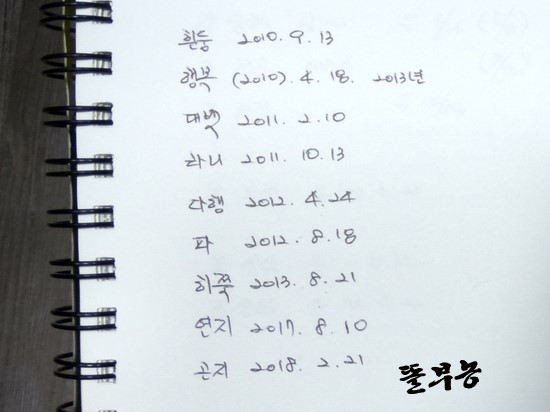 흰둥 2010. 9. 13
행복 (2010). 4. 18. 2013년
대박 2011. 2. 10
라니 2011. 10. 13
다행 2012. 4. 24
파 2012. 8. 18
히쭉 2013. 8. 21
연지 2017. 8. 10
곤지 2018. 2. 21
뜰부농